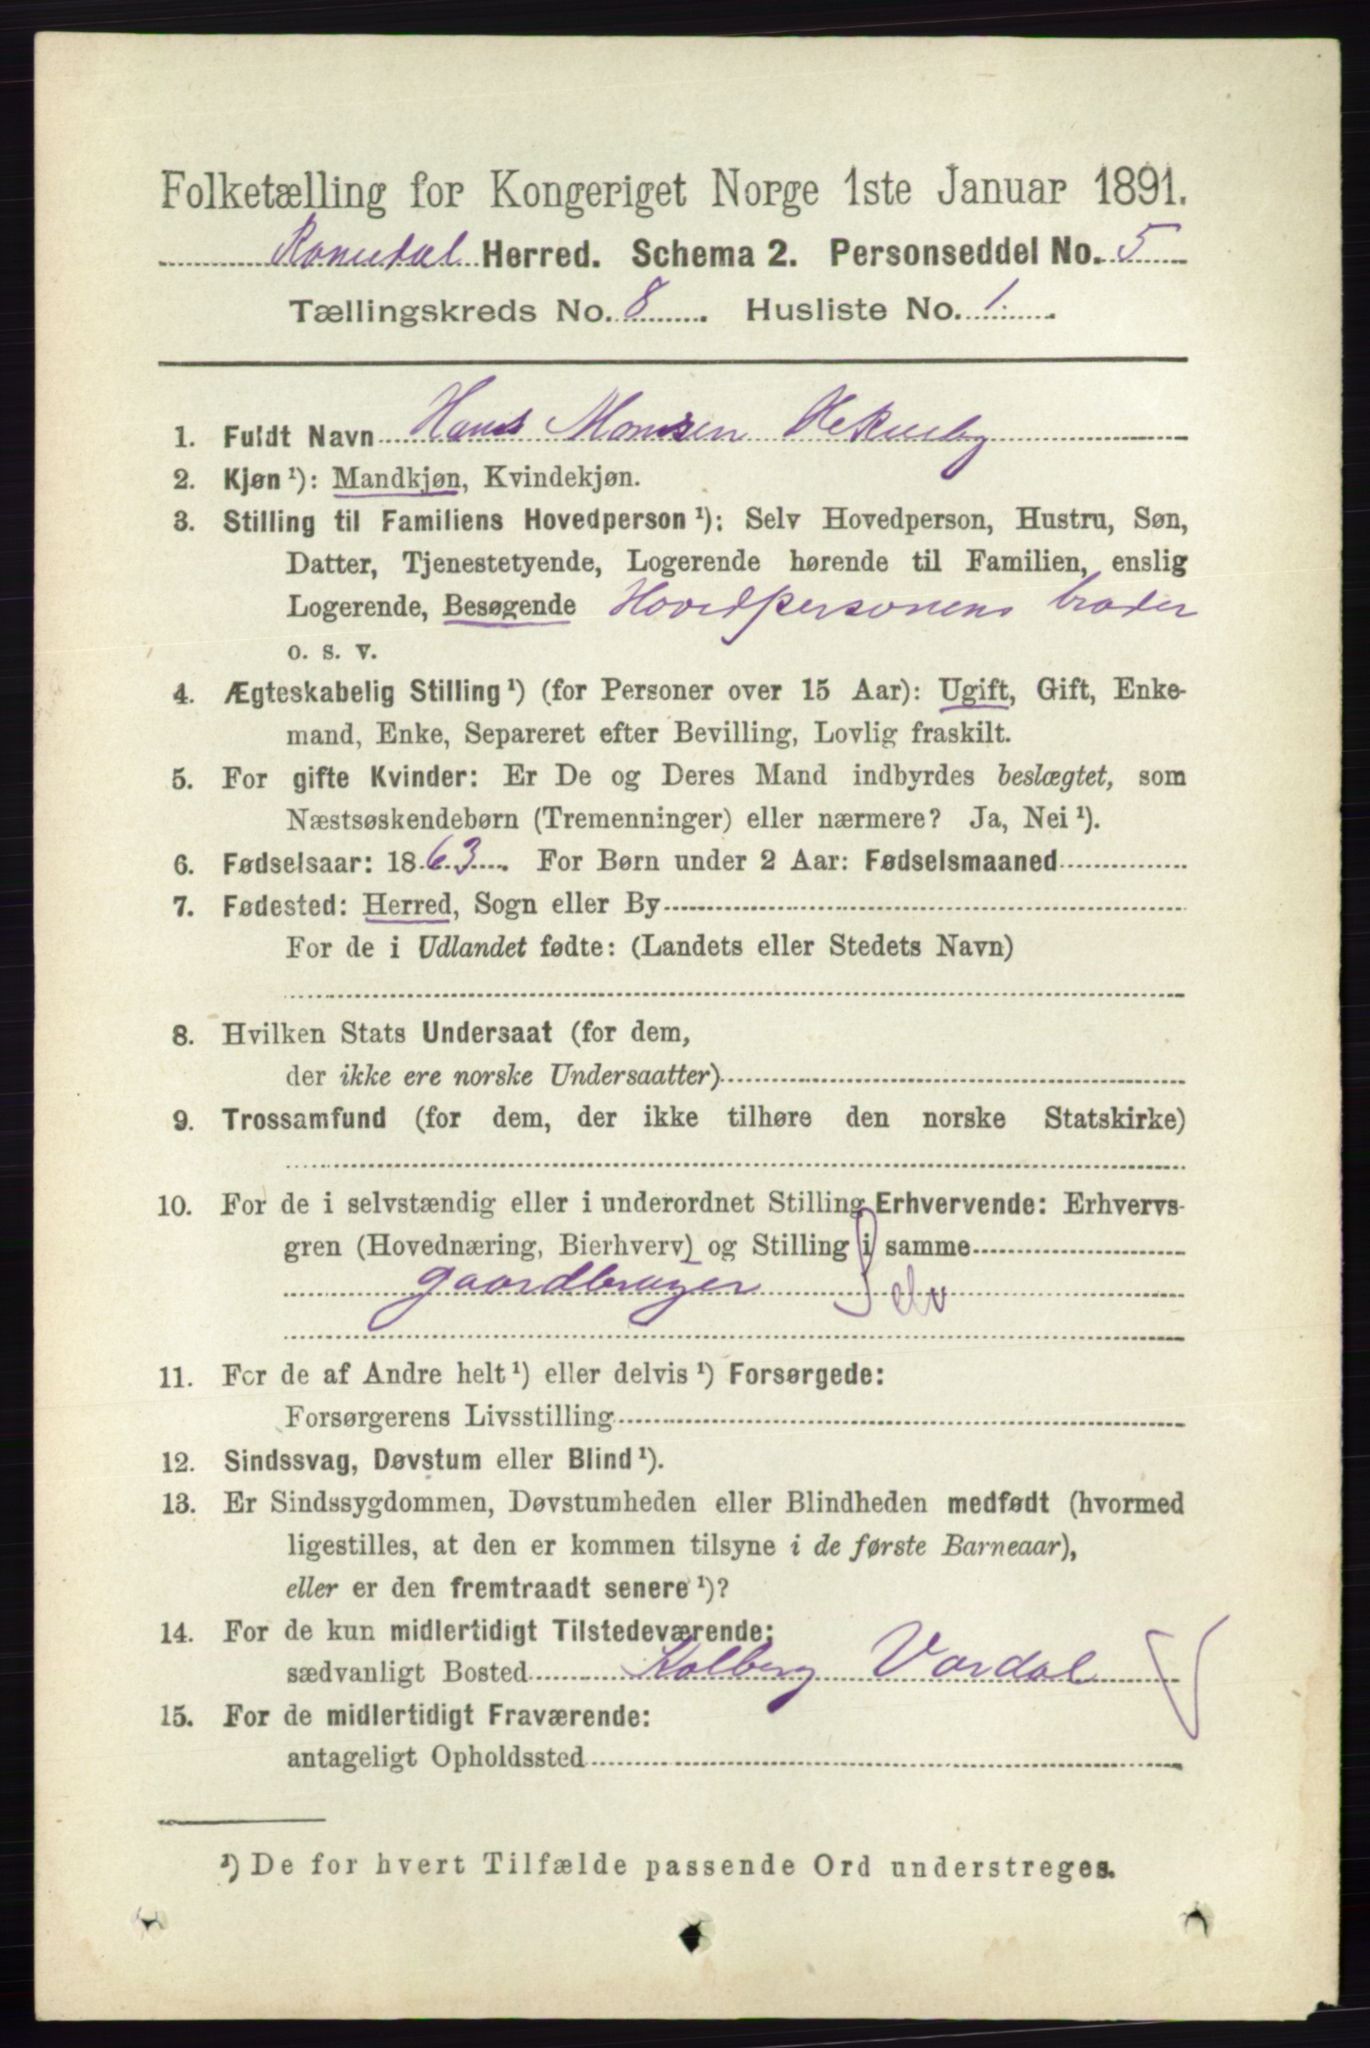 Folketælling for Kongeriget Norge 1ste Januar 1891.
Romedal Herred. Schema 2. Personseddel No. 5
Tællingskreds No. 8. Husliste No. 1.
1. Fuldt Navn Hans Monsen
2. Kjøn ¹): Mandkjøn, Kvindekjøn.
3. Stilling til Familiens Hovedperson ¹): Selv Hovedperson, Hustru, Søn,
Datter, Tjenestetyende, Logerende hørende til Familien, enslig
Logerende, Besøgende Hovedpersonens broder
o. s. v.
4. Ægteskabelig Stilling ¹) (for Personer over 15 Aar): Ugift, Gift, Enke-
mand, Enke, Separeret efter Bevilling, Lovlig fraskilt.
5. For gifte Kvinder: Er De og Deres Mand indbyrdes beslægtet, som
Næstsøskendebørn (Tremenninger) eller nærmere? Ja, Nei ¹).
6. Fødselsaar: 1863. For Børn under 2 Aar: Fødselsmaaned
7. Fødested: Herred, Sogn eller By
For de i Udlandet fødte: (Landets eller Stedets Navn)
8. Hvilken Stats Undersaat (for dem,
der ikke ere norske Undersaatter)
9. Trossamfund (for dem, der ikke tilhøre den norske Statskirke)
10. For de i selvstændig eller i underordnet Stilling Erhvervende: Erhvervs-
gren (Hovednæring, Bierhverv) og Stilling i samme
gaardbruger Selv
11. For de af Andre helt ¹) eller delvis ¹) Forsørgede:
Forsørgerens Livsstilling
12. Sindssvag, Døvstum eller Blind ¹).
13. Er Sindssygdommen, Døvstumheden eller Blindheden medfødt (hvormed
ligestilles, at den er kommen tilsyne i de første Barneaar),
eller er den fremtraadt senere ¹)?
14. For de kun midlertidigt Tilstedeværende:
sædvanligt Bosted Kolberg Vardal
15. For de midlertidigt Fraværende:
antageligt Opholdssted
¹) De for hvert Tilfælde passende Ord understreges.